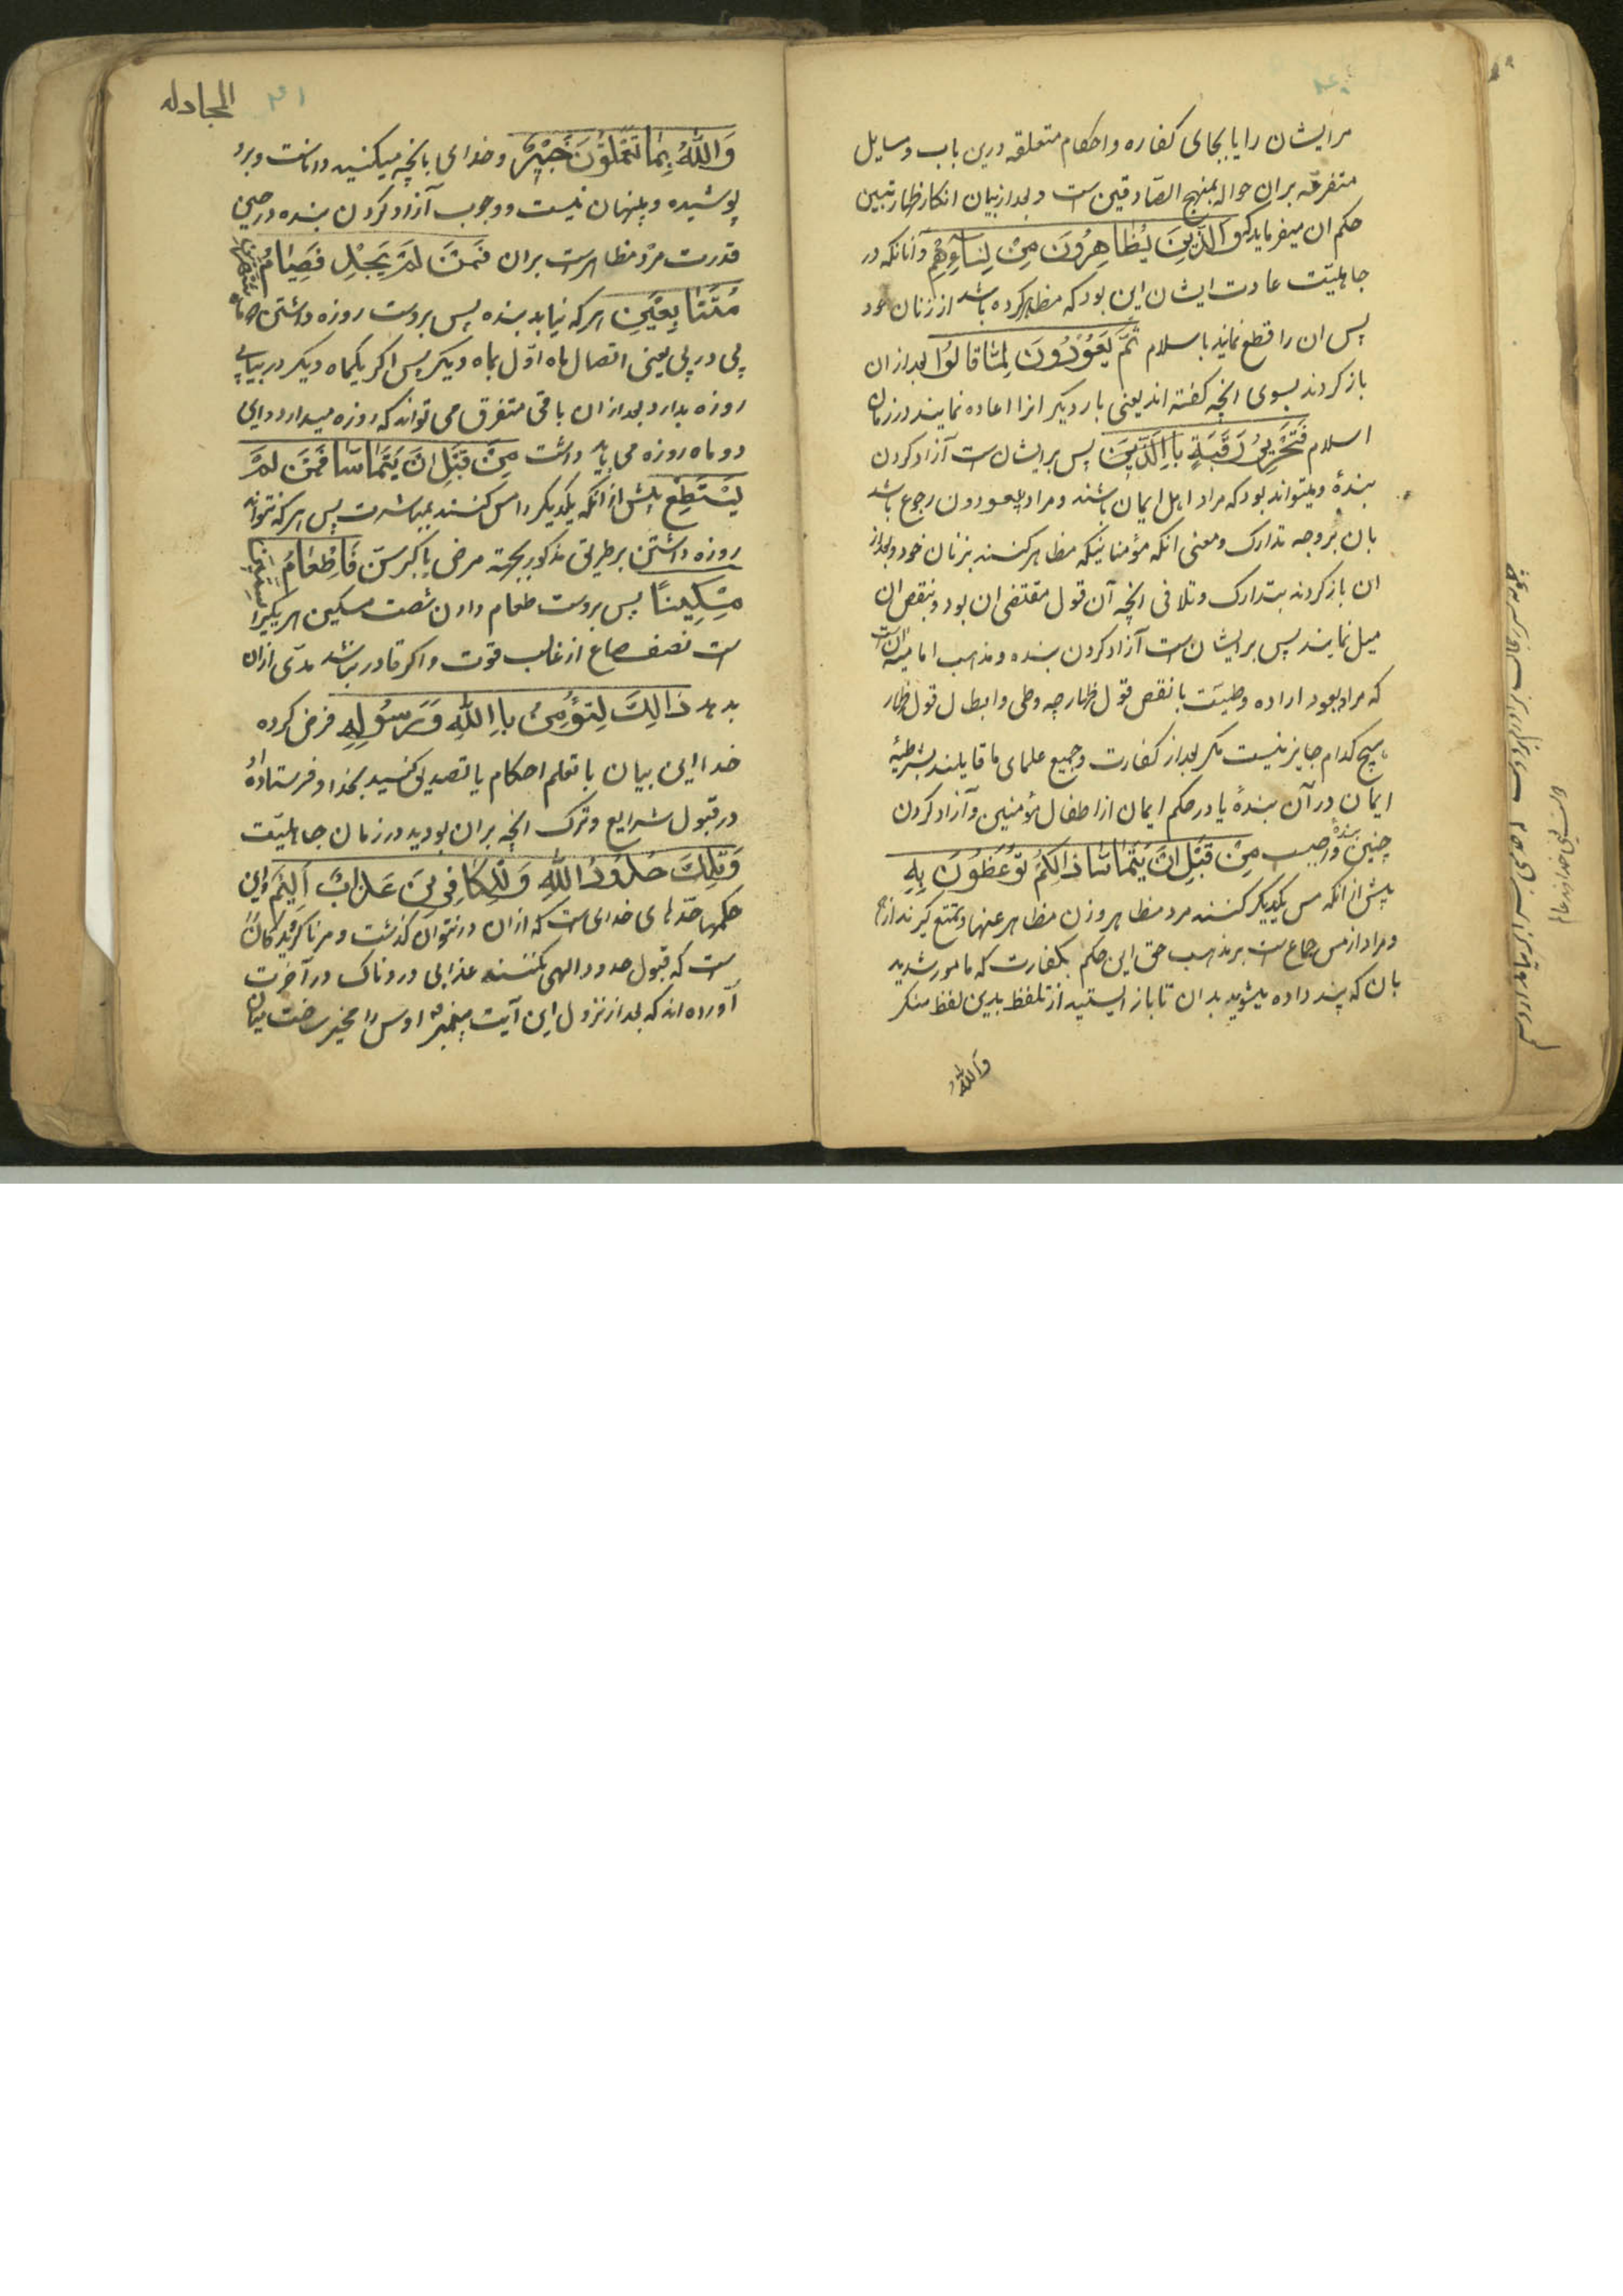 مرایشان را یا بجای کفاره و احکام متعلقه درین باب و مسایل
متفرعه بران حواله بمنهج الصادقین است و بعد از بیان انکار ظهار تبیین
حکم ان میفرماید که وَالَّذِینَ یُظَاهِرُونَ مِنْ نِسَآءِهِمْ و آنانکه در
جاهلیّت عادت ایشان این بود که مظاهر کرده باشند از زنان خود
پس ان را قطع نمایند باسلام ثُمَّ یَعُوْدُونَ لِمَا قَالُوْا بعد از ان
باز کردند بسوی انچه کفته اند یعنی بار دیکر انرا اعاده نمایند در زمان
اسلام فَتَحْرِیْرُ رَقَبَةٍ بااِلَّذِیْنَ پس بر ایشان است آزاد کردن
بندهٔ و میتواند بود که مراد اهل ایمان باشند و مراد بیعودون رجوع باشد
بان بر وجه تدارک و معنی انکه مؤمنانیکه مظاهر کنند بزنان خود و بعد از
ان باز کردند بتدارک و تلافی انچه آن قول مقتضی ان بود و بنقص ان
میل نمایند پس بر ایشان است آزاد کردن بنده و مذهب امامیه انست
که مراد بعود اراده وطیست با نقص قول ظهار چه وطی و ابطال قول ظهار
هیچ کدام جایز نیست مکر بعد از کفارت و جمیع علمای ما قایلند بشرطیهٔ
ایمان در آن بندهٔ یا در حکم ایمان از اطفال مؤمنین و آزاد کردن
چنین بندهٔ واجب مِنْ قَبْلِ اَنْ یَتَمَاسَّا ذَالِکُمْ تُوْعَظُوْنَ بِهِ
پیش از انکه مس یکدیکر کنند مرد مظاهر و زن مظاهر عنها و تمتع کیرند از هم
و مراد از مس جماع است بر مذهب حق این حکم بکفارت که مامور شدید
بان که پند داده میشوید بدان تا باز ایستید از تلفظ بدین لفظ منکر
والله
المجادله
۴۱
وَاللّٰهُ بِمَا تَعْمَلُوْنَ خَبِیْرٌ و خدای بانچه میکنید داناست و برو
پوشیده و پنهان نیست و وجوب آزاد کردن بنده در حین
قدرت مرد مظاهر است بران فَمَنْ لَمْ یَجِدْ فَصِیَامُ شَهْرَیْنِ
مُتَتَابِعَیْنِ هر که نیابد بنده پس بروست روزه داشتن دو ماه
پی در پی یعنی اتصال ماه اوّل بماه دیکر پس اکر یکماه دیکر در بیاپی
روزه بدارد بعد از ان باقی متفرق می تواند که روزه میدارد و این
دو ماه روزه می باید داشت مِنْ قَبْلِ اَنْ یَتَمَاسَّا فَمَنْ لَمْ
یَسْتَطِعْ پیش از آنکه یکدیکر را مس کنند بمباشرت پس هر که نتواند
روزه داشتن بر طریق مذکور بجهة مرض یا کبر سن فَاِطْعَامُ سِتِّیْنَ
مِسْکِیْنًا پس بروست طعام دادن شصت مسکین هر یکیرا
است نصف صاع از غالب قوت و اکر قادر نباشد مدّی از ان
بدهد ذَالِکَ لِتُؤْمِنُ بااِللّٰهِ وَرَسُوْلِهِ فرض کرده
خدا این بیان با تعلم احکام یا تصدیق کنید بخدا و فرستادهٔ او
در قبول شرایع و ترک انچه بران بودید در زمان جاهلیّت
وَتِلْکَ حُدُوْدُ اللّٰهِ وَلِلْکَافِرِیْنَ عَذَابٌ اَلِیْمٌ و این
حکمها حدّهای خدای است که از ان در نتوان کذشت و مر ناکرویدکانرا
است که قبول حدود الهی نکنند عذابی دردناک در آخرت
آورده اند که بعد از نزول این آیت پیغمبر اوس را مخیر ساخت میان